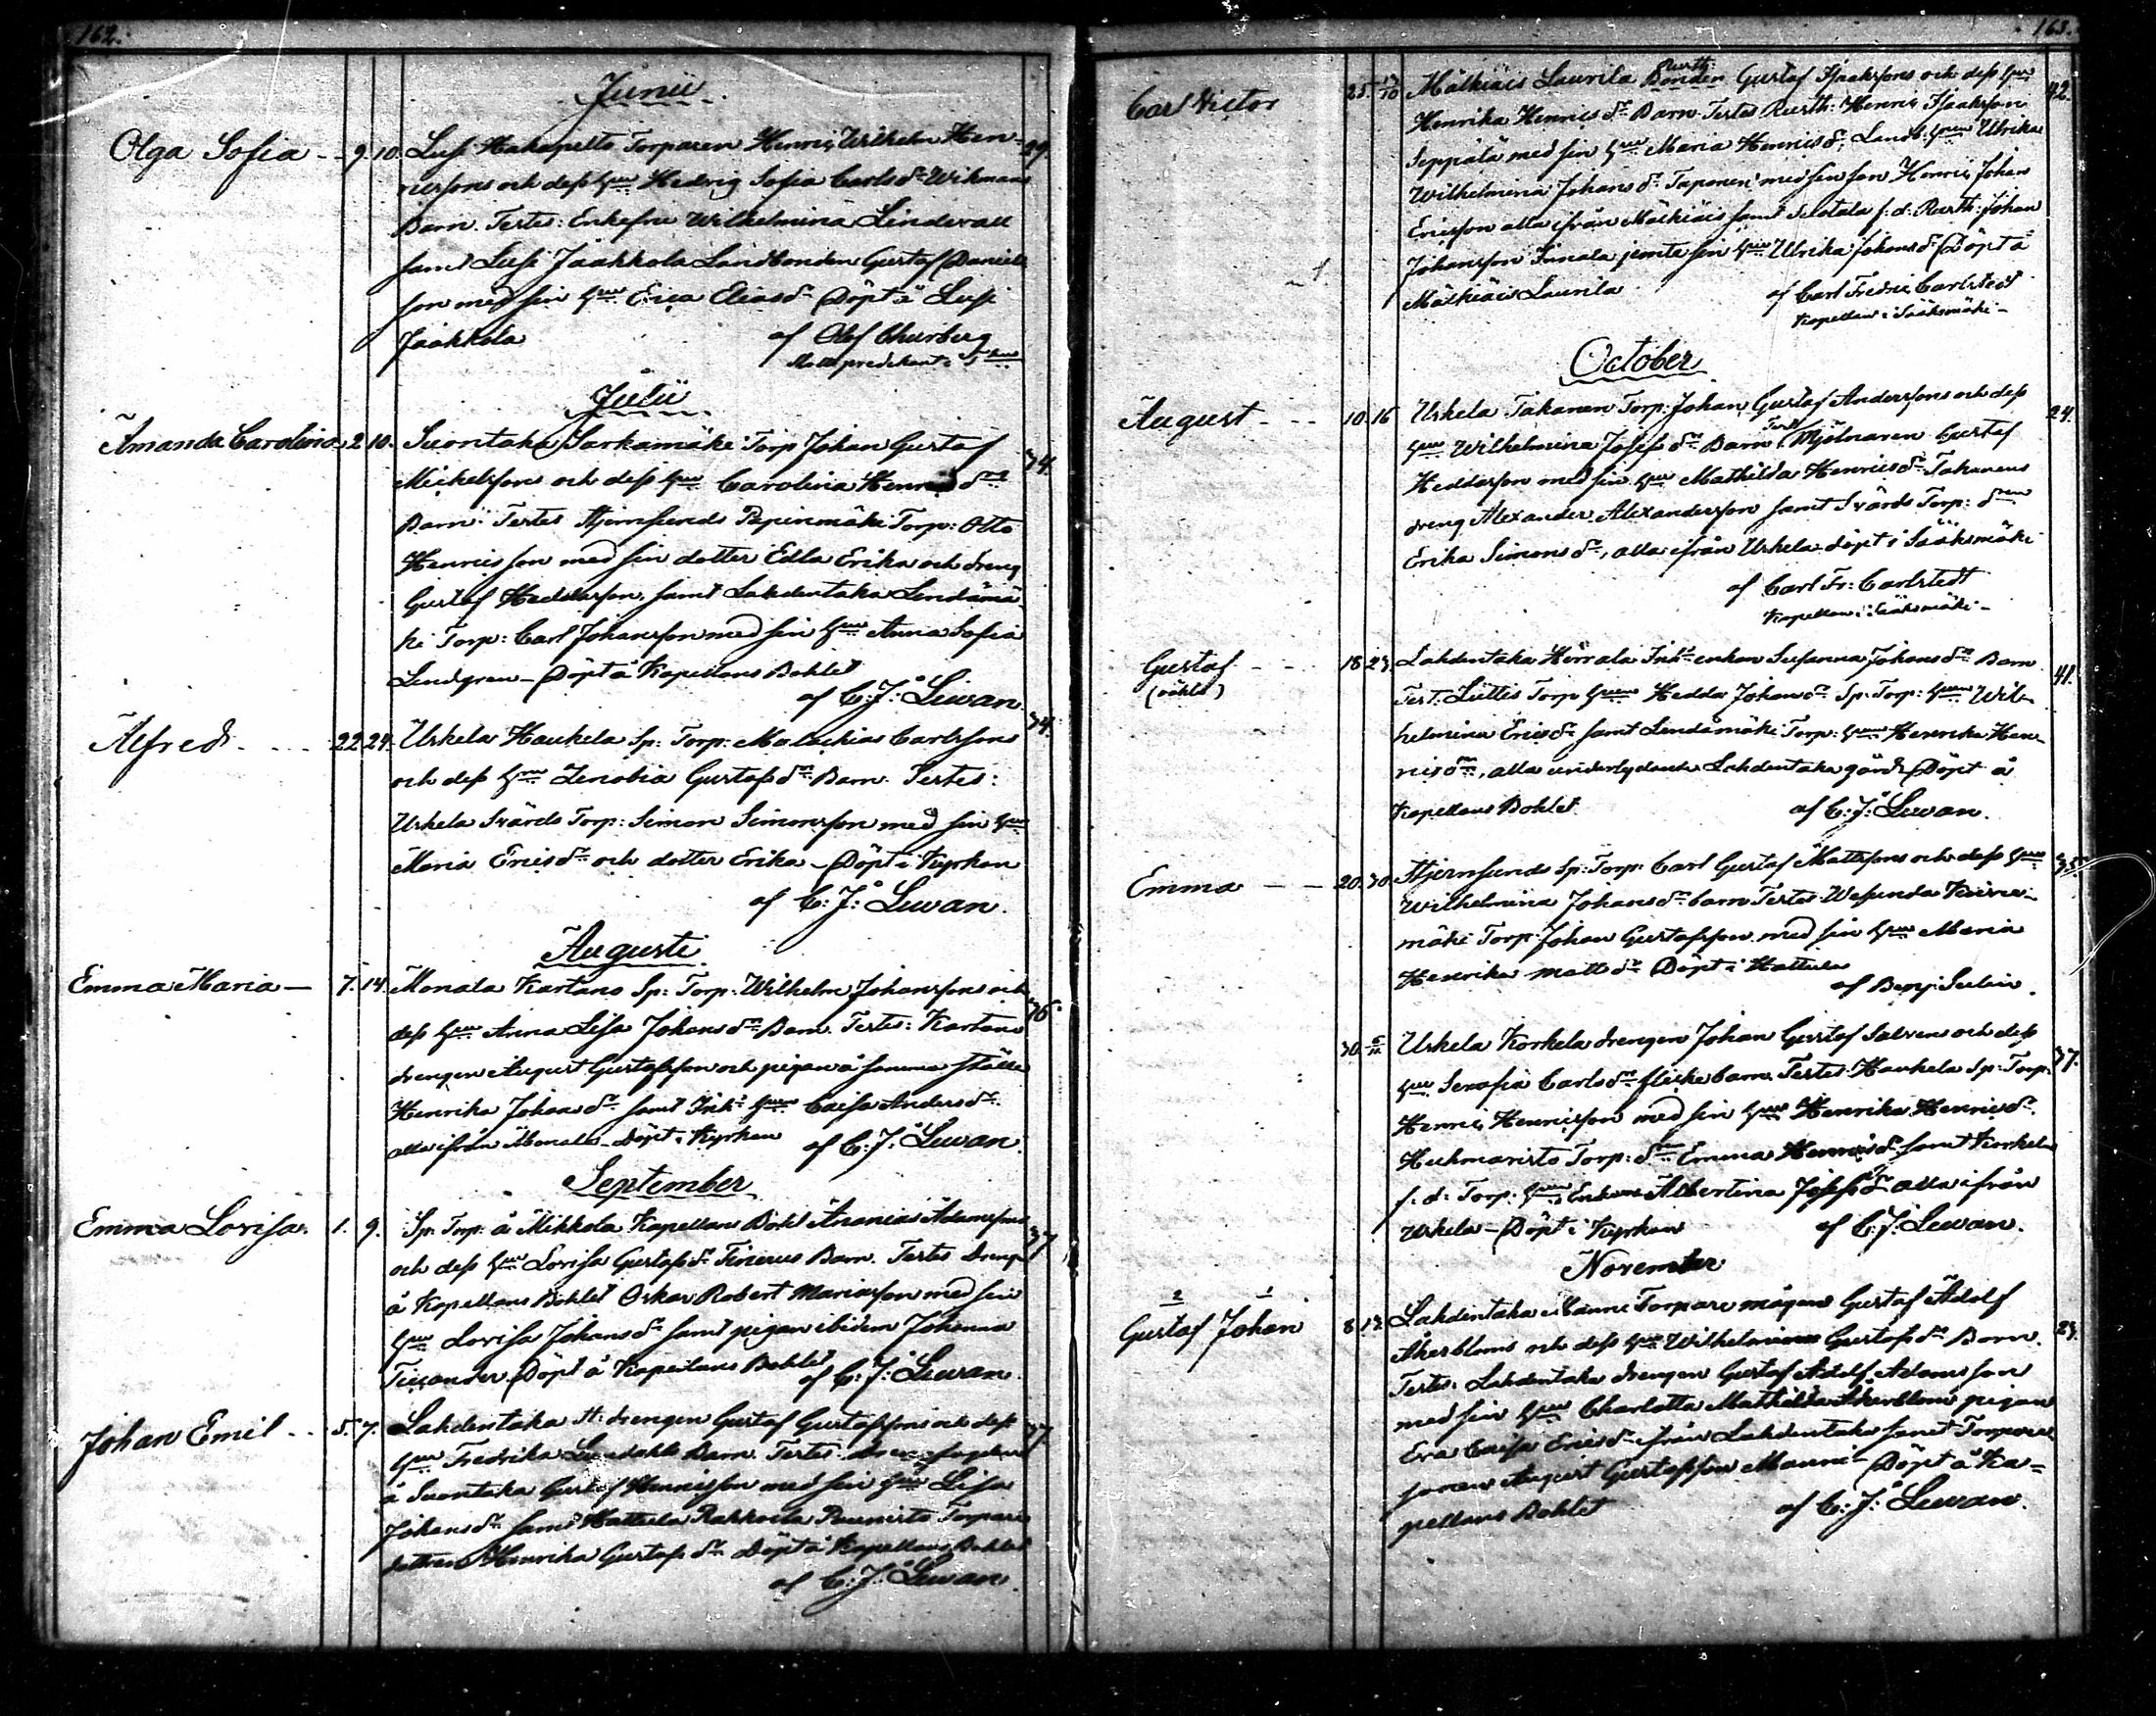 162.
Junii
Olga Sofia - - 9. 10. Lusi Hakapelto Torparen Henric Wilhelm Hen- 29.
ricssons och dess Hru Hedvig Sofia Carls dr Wikmans
Barn. Testes: Enkefru Wilhelmina Lindevall
samt Lusi Jaakkola Landbonden Gustaf Daniels
son med sin Hru Erica Elias dr Döpt å Lusi
Jaakkola af Olof Churberg
predikant i
Julii
Amanda Carolina 2. 10. Suontaka Sarkamäki Torp Johan Gustaf 34.
Michelssons och dess Hru Carolina Henrics drs
Barn. Testes Stjernsunds Papinmäki Torp: Otto
Henricsson med sin dotter Edla Erika och dreng
Gustaf Heddasson, samt Lahdentaka Lendämä-
ki Torp: Carl Johansson med sin Hru Anna Sofia
Lindgren - Döpt å Kapellans Bohlet
af C: J: Lewan.
Alfred - - - - 22 24. Urhela Haukela Sp: Torp: Malachias Carlssons 34.
och dess Hru Zenobia Gustafs drs Barn. Testes:
Urhela Svärds Torp: Simon Simonsson med sin Hru
Maria Erics dr och dotter Erika - Döpt i Kyrkan
af C: J: Lewan.
Augusti
Emma Maria - 7. 14. Monala Kartano Sp: Torp: Wilhelm Johanssons och 36.
dess Hru Anna Lisa Johans drs Barn. Testes: Kartano
drengen August Gustafsson och pigan å samma ställe
Henrika Johans dr samt Inhs Hrun Caisa Anders dr
alla ifrån Monala - Döpt i Kyrkan af C: J: Lewan.
September
Emma Lovisa. 1. 9. Sp: Torp: å Mikkola Kapellans Bohl Anania Adamssons 37
och dess Hru Lovisa Gustafs dr Barn. Testes Dreng
å Kapellans Bohlet Oskar Robert Mariasson med sin
Hru Lovisa Johans dr samt pigan ibidem Johanna
Döpt å Kapellans Bohlet af C: J: Lewan.
Johan Emil - - 5. 7. Lahdentaka St: drengen Gustaf Gustafssons och dess 37
Hru Fredrika Barn. Testes:
å Suontaka Gustaf Henricsson med sin Hru Lisa
Johans dr samt Hattula Rahkoila Torpare
dottren Henrika Gustafs dr Döpt å Kapellans Bohlet
af C: J: Lewan.
163.
Carl Victor 25. 13/10 Mälkiäis Laurila Rusth: Bonden Gustaf Isaakssons och dess Hru 42.
Henrika Henrics drs Barn. Testes Rusth: Henric Isaaksson
Seppälä med sin Hru Maria Henrics dr, Landb: Hrun Ulrika
Wilhelmina Johans dr Taponen med sin son Henric Johan
Ericsson alla ifrån Mälkiäis samt f: d: Rusth: Johan
Johansson jemte sin Hru Ulrika Johans dr Döpt å
Mälkiäis Laurila af Carl Fredric Carlstedt
Kapellan i Sääksmäki -
October
August - - - 10. 16 Urhela Takanen Torp: Johan Gustaf Anderssons och dess 24.
Hru Wilhelmina Josefs drs Barn Test: Mjölnaren Gustaf
Heddasson med sin Hru Mathilda Henrics dr Takanens
dreng Alexander Alexandersson samt Svärds Torp: dren
Erika Simons dr, alla ifrån Urhela döpt i Sääksmäki
af Carl Fr: Carlstedt
Kapellan i Sääksmäki -
Gustaf - - - 18 23. Lahdentaka Herrala Inhs enkan Susanna Johans drs Barn 41.
(oäkta) Test: Lüttis Torp Hrun Hedda Johans dr Sp: Torp: Hrun Wil-
helmina Erics dr samt Lendämäki Torp: Hrun Henrika Hen-
rics dr, alla underlydande Lahdentaka gård. Döpt å
Kapellans Bohlet. af C: J: Lewan.
Emma - - 20. 30. Stjernsunds Sp: Torp: Carl Gustaf Mattssons och dess Hru 35.
Wilhelmina Johans drs barn Testes
mäki Torp: Johan Gustafsson med sin Hru Maria
Henrika Matts dr Döpt i Hattula
af Benj:
30. 6/11 Urhela Korkela drengen Johan Gustaf Salvens och dess 37.
Hru Serafia Carls drs flicke barn. Testes Haukela Sp: Torp:
Henric Henricsson med sin Hru Henrika Henrics dr
Torp: drn Emma Henrics dr samt Korkela
f: d: Torp: Hrun, Enkan Albertina Josefs dr alla ifrån
Urhela - Döpt i Kyrkan af C: J: Lewan.
November
2 1
Gustaf Johan 8. 13. Lahdentaka Torpare mågens Gustaf Adolf 23.
Åkerbloms och dess Hru Wilhelmina Gustafs drs Barn.
Testes: Lahdentaka drengen Gustaf Adolf Adamsson
med sin Hru Charlotta Mathilda Åkerblom pigan
Eva Caisa Erics dr ifrån Lahdentaka samt Torpare
sonen August Gustafsson Manni - Döpt å Ka-
pellans Bohlet af C: J: Lewan.